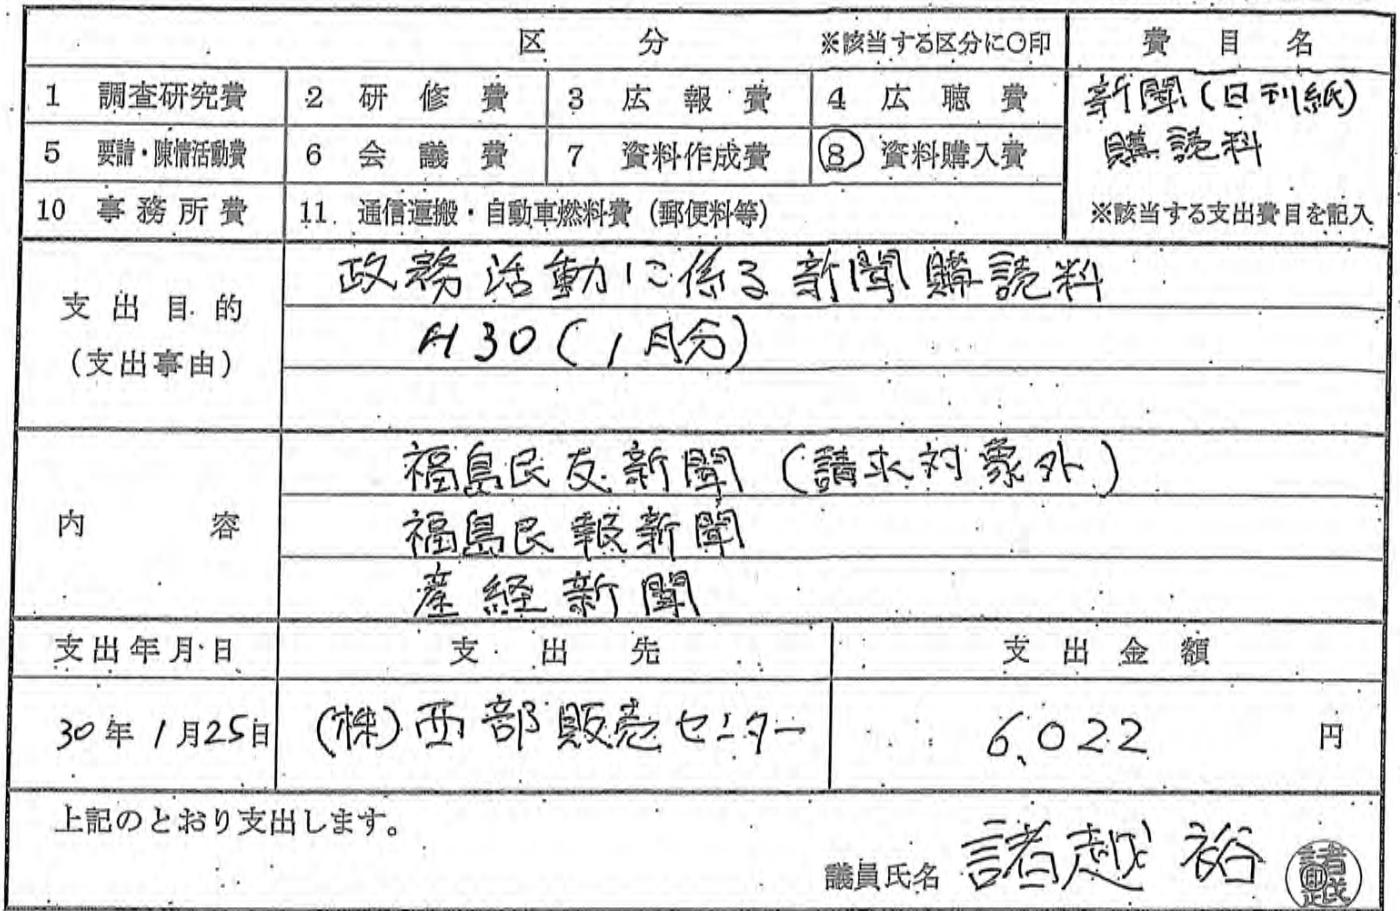 区 分 ※該当する区分に○印 費 目 名
1 調査研究費 2 研修費 3 広報費 4 広聴費 新聞(日刊紙)
5 要請・陳情活動費 6 会議費 7 資料作成費 ⑧ 資料購入費 購読料
10 事務所費 11. 通信運搬・自動車燃料費(郵便料等) ※該当する支出費目を記入
政務活動に係る新聞購読料
支出目的
H30(1月分)
(支出事由)
福島民友新聞(請求対象外)
内 容 福島民報新聞
産経新聞
支出年月日 支出先 支出金額
30年1月25日 (株)西部販売センター 6,022 円
上記のとおり支出します。
議員氏名 諸越 裕 印